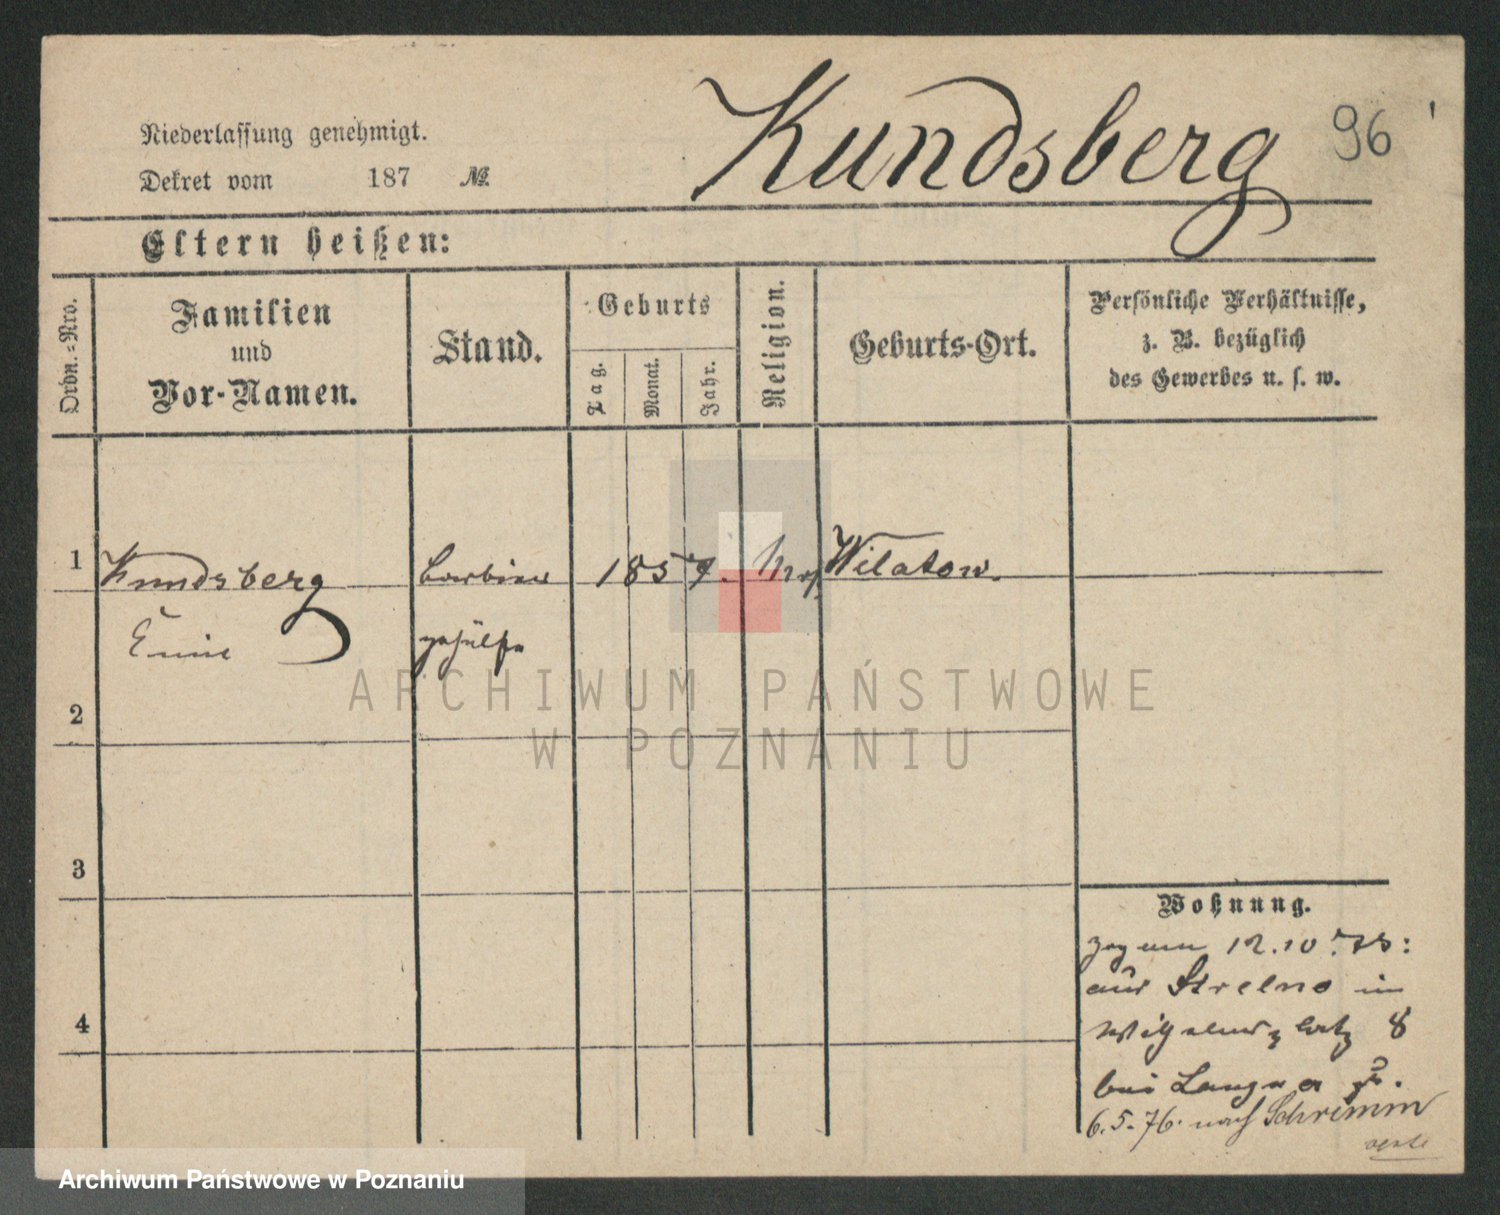 Kundsberg 96
Niederlassung genehmigt.
Dekret vom 187 №
Eltern heißen:
Ordn.=Nro.
Familien
und
Vor-Namen.
Stand.
Geburts
Tag.
Monat.
Jahr.
Religion.
Geburts-Ort.
Persönliche Verhältnisse,
z. B. bezüglich
des Gewerbes u. s. w.
1 Kundsberg Barbier 1857. Mos. Wilatow.
Emil gehülfe
2
3
4
Wohnung.
zog am 12.10.75:
aus Strelno in
Wilhelmsplatz 8
bei Langner
6.5.76. nach Schrimm
ARCHIWUM PAŃSTWOWE
W POZNANIU
Archiwum Państwowe w Poznaniu